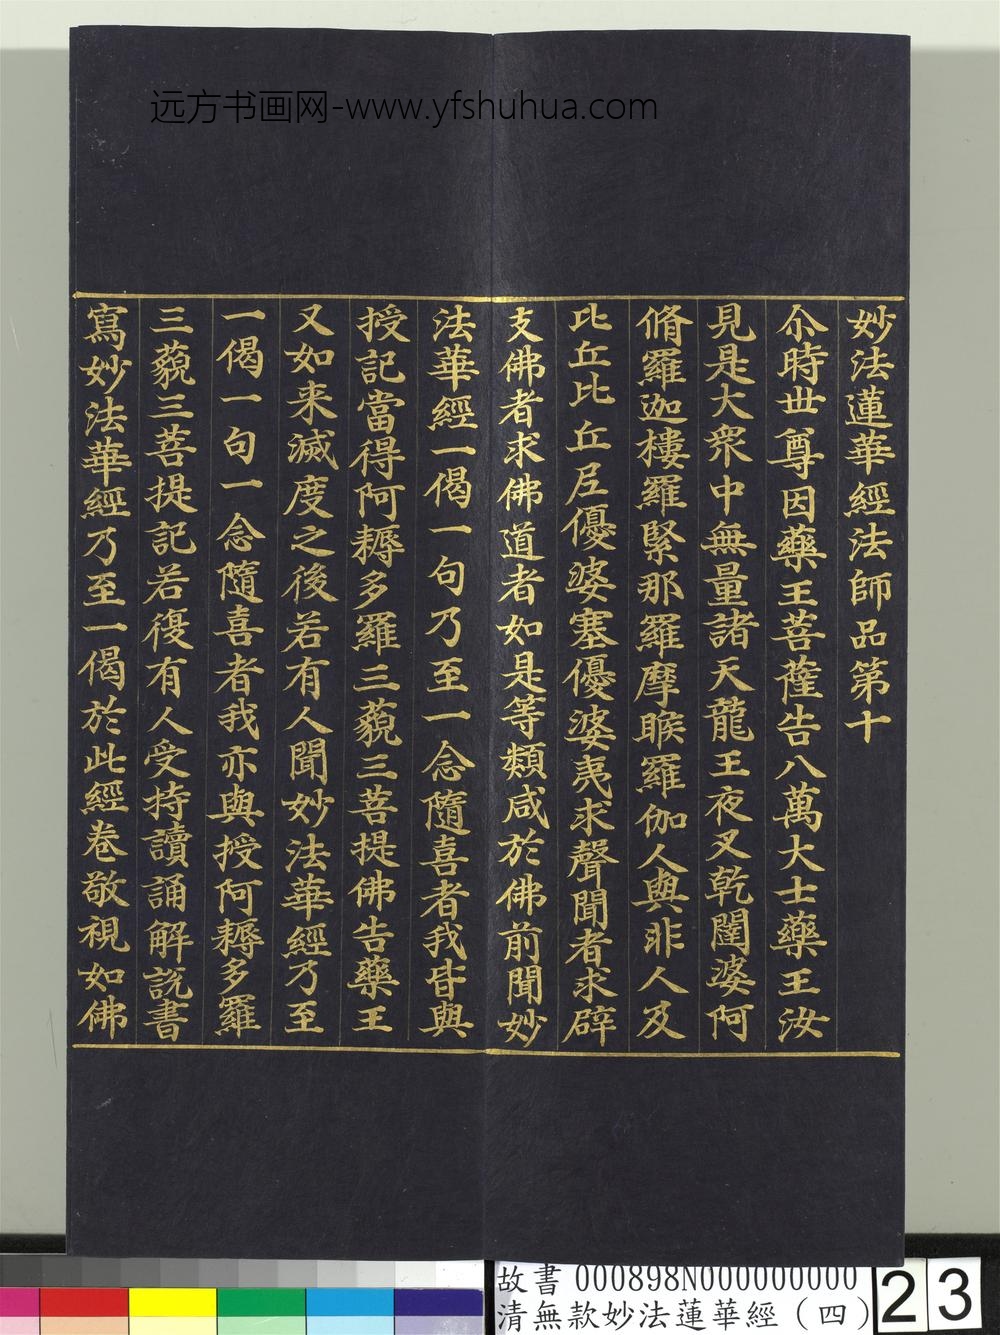 远方书画网-www.yfshuhua.com
妙法蓮華經法師品第十
尒時世尊因藥王菩薩告八萬大士藥王汝
見是大衆中無量諸天龍王夜叉乾闥婆阿
脩羅迦樓羅緊那羅摩睺羅伽人與非人及
比丘比丘尼優婆塞優婆夷求聲聞者求辟
支佛者求佛道者如是等類咸於佛前聞妙
法華經一偈一句乃至一念隨喜者我皆與
授記當得阿耨多羅三藐三菩提佛告藥王
又如来滅度之後若有人聞妙法華經乃至
一偈一句一念隨喜者我亦與授阿耨多羅
三藐三菩提記若復有人受持讀誦解說書
寫妙法華經乃至一偈於此經卷敬視如佛
故書 000898N000000000
清無款妙法蓮華經（四）
23